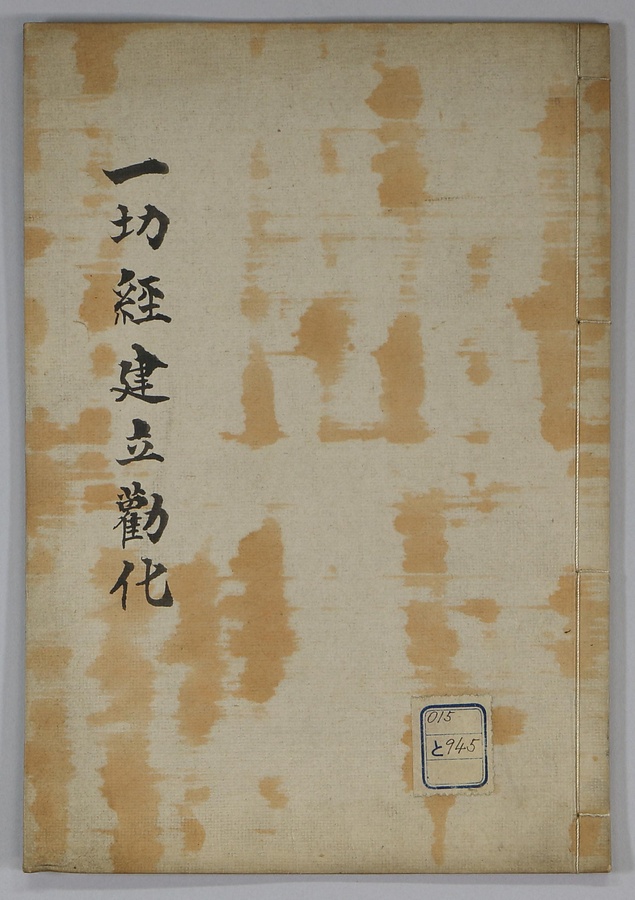 一切經建立勸化
015
と945